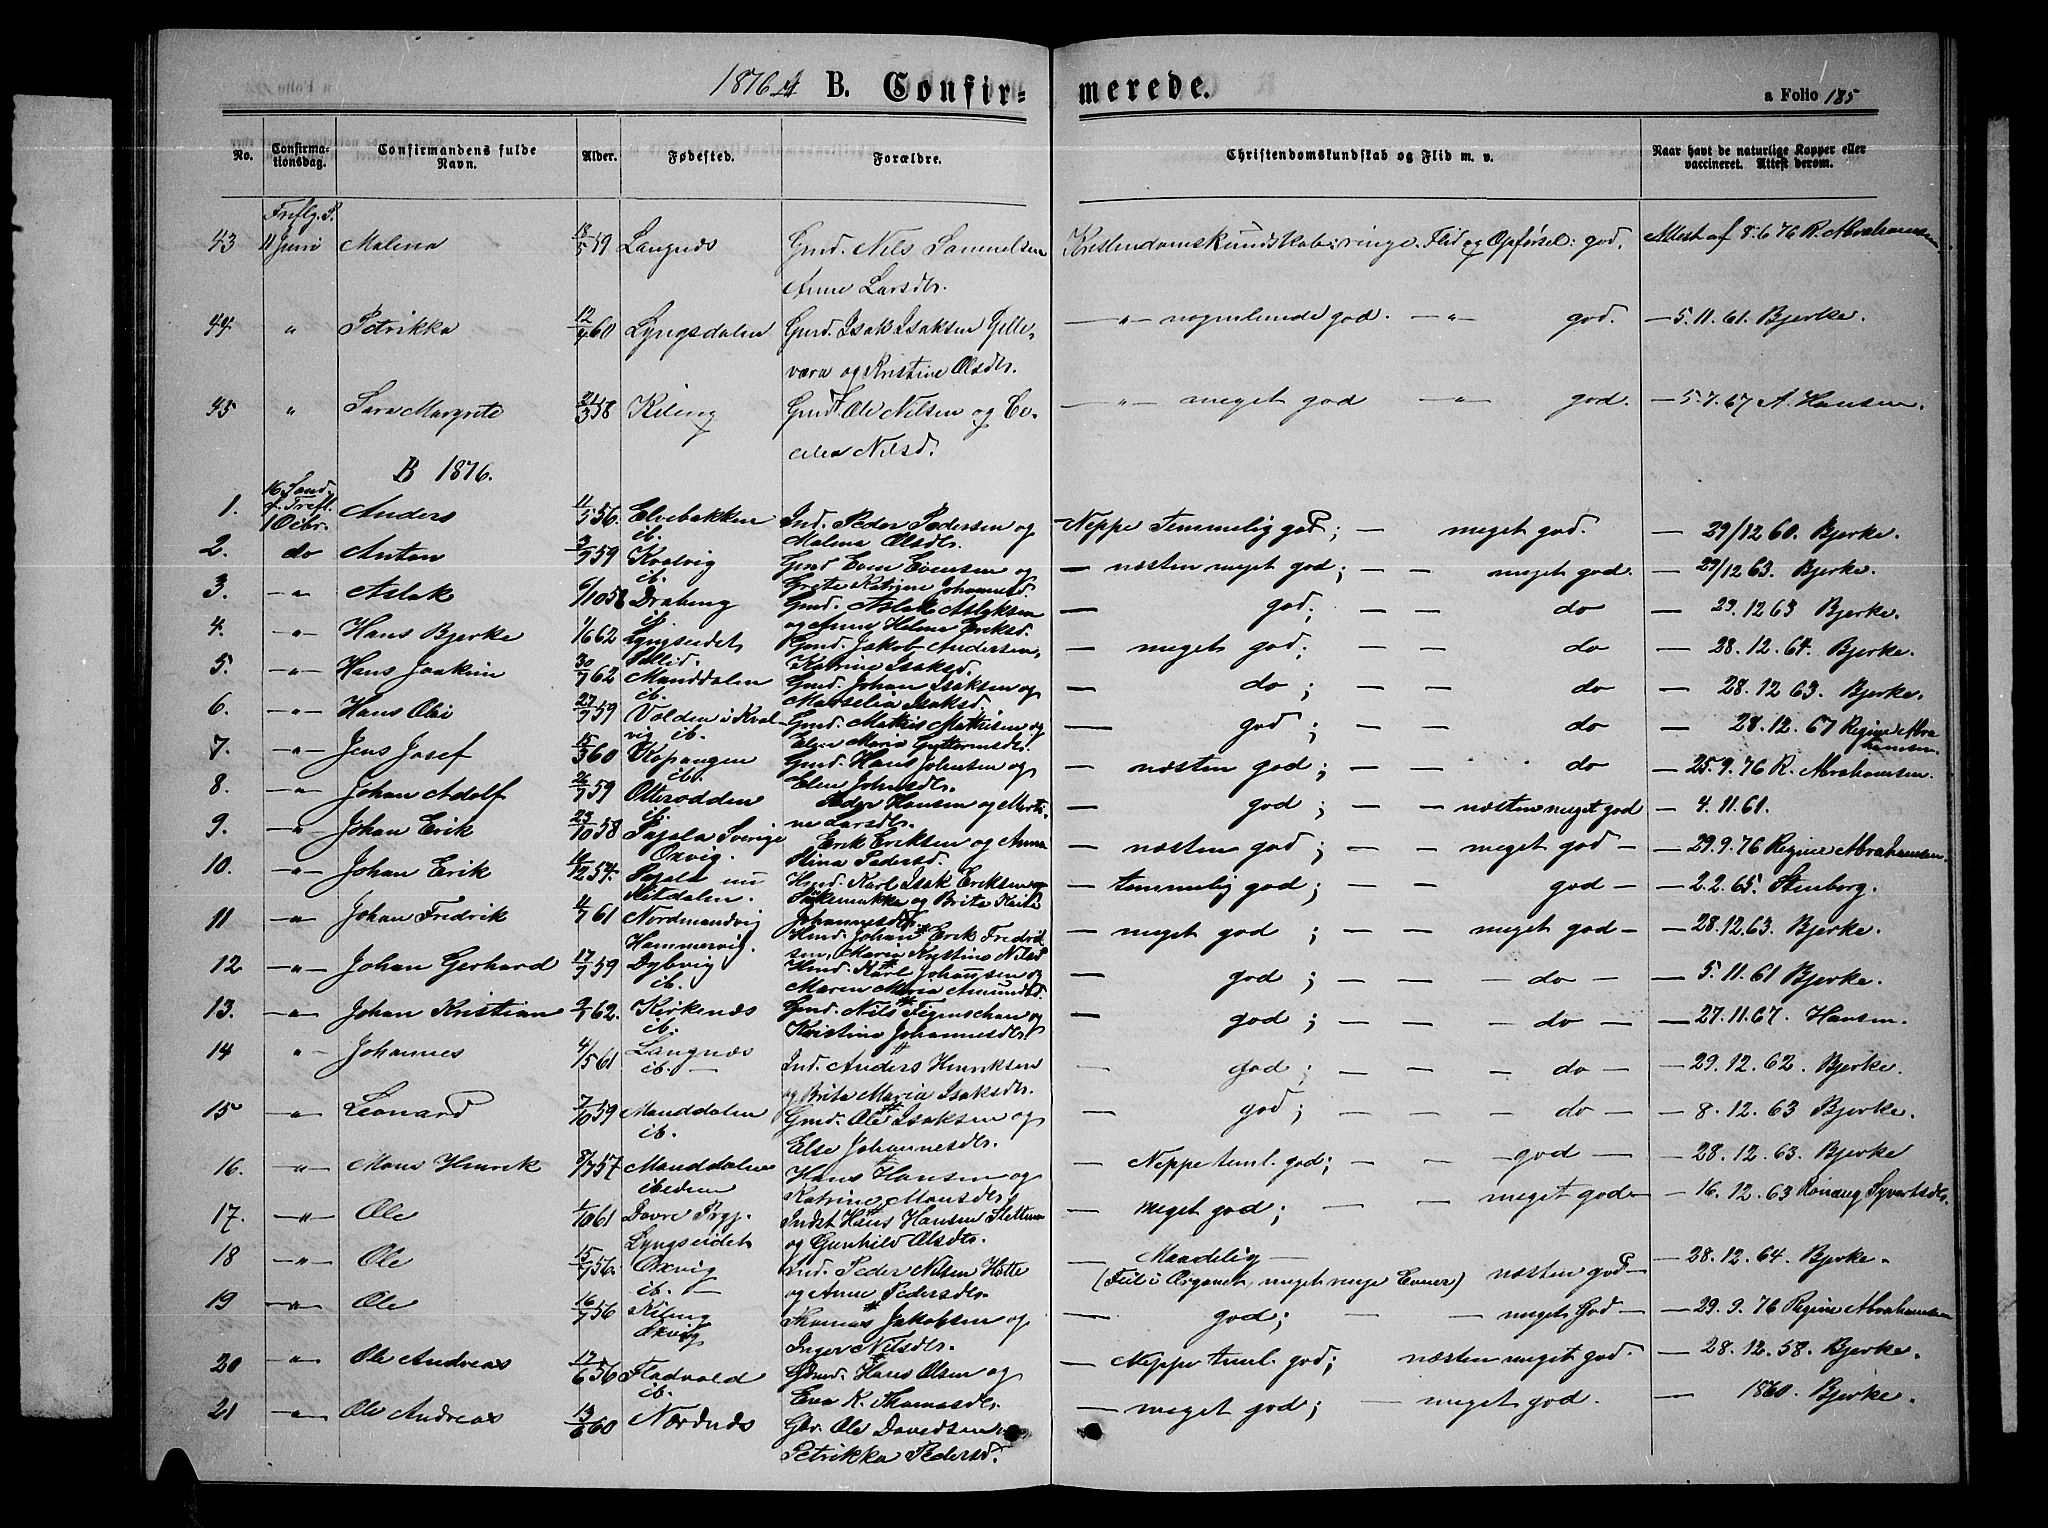 1876 A B. Confir- merede. a Folio 185
No. Confirma- tionsdag. Confirmandens fulde Navn. Alder. Fødested. Forældre. Christendomskundskab og Flid m. v. Naar havt de naturlige Kopper eller vaccineret. Attest derom.
43 11 Juni Malena 18/5 59 Langnæs Gmd. Nils Samuelsen Kristendomskundskab: ringe. Flid og Opførsel: god. Attest af 8.6 76 R. Abrahamsen
Anne Larsdr.
44 " Petrikka 12/4 60 Lyngsdalen Gmd. Isak Isaksen Gelle- — " — nogenlunde god. — " — god. — 5.11.61. Bjerke.
vara og Kristine Olsdr.
45 " Sara Margrete 21/3 58 Kileng Gmd. Ole Nilsen og Ce- — " — meget god — " — god. — 5.7.67 A. Hansen.
cilia Nilsd.
B 1876.
16 Sønd.
1. f. Trefl. Anders 11/5 56. Elvebakken Ind. Peder Pedersen og Neppe Temmelig god; — meget god. — 29/12 60. Bjerke.
1 Octbr. ib. Malena Olsdr.
2. do Anton 3/9 59 Kvalvig Gmd Even Evensen og — næsten meget god; — — meget god. — 29/12 63. Bjerke.
ib. Grete Katrine Johannesd.
3. — " — Aslak 6/10 58 Draleng Gmd. Aslak Aslaksen — god; — — do — 29.12 63 Bjerke.
ib. og Anne Helene Eriksd.
4. — " — Hans Bjerke 1/6 62 Lyngseidet Gmd. Jakob Andersen, — meget god; — — do — 28.12.64. Bjerke.
Katrine Isaksd.
5. — " — Hans Joakim 30/7 62 Manddalen Gmd. Johan Isaksen og — do; — — do — 28.12 63. Bjerke.
ib. Marselia Isaksd.
6. — " — Hans Olai 27/9 59 Volden i Kval- Gmd. Mathis Mathisen og — god; — — do — 28.12.67 Regine Abra-
vig ib. Elen Maria Guttormsdr. hamsen.
7. — " — Jens Josef 15/3 60 Kopangen Gmd. Hans Johnsen og — næsten god; — — do — 25.9.76 R. Abrahamsen.
ib. Elen Johnsdr.
8. — " — Johan Adolf 26/7 59 Otterodden Peder Hansen og Marti- — god; — — næsten meget god — 4.11.61.
ib. ne Larsdr.
9. — " — Johan Erik 23/10 58 Pajala Sverige Erik Eriksen og Anna — næsten god; — — meget god — — 29.9.76 Regine Abrahamsen.
Oxvig. Stina Pedersd.
10. — " — Johan Erik 16/12 54. Pajala nu Hmd. Karl Isak Eriksen — temmelig god; — — god — — 2.2.65. Stenborg.
Kitdalen. og Brita Kaisa
11 — " — Johan Fredrik 4/7 61 Nordmandvig Johannesdr. — meget god; — — meget god — — 28.12.63. Bjerke.
Hammervig. Hmd. Johan Erik Fredrik
sen, Maria Kristine Nilsd
12 — " — Johan Gerhard 17/7 59 Dybvig Hmd. Karl Johansen og — god; — — do — — 5.11.61 Bjerke.
ib. Maren Maria Amundsd.
13. — " — Johan Kristian 9/1 62. Kirkenæs Gmd. Nils Figenschau og — god; — — do — — 27.11.67. Hansen.
ib. Kristine Johannesdr.
14 " — Johannes 4/5 61 Langnæs Ind. Anders Henriksen — god; — — do — — 29.12.62. Bjerke.
ib. — og Brita Maria Isaksdr.
15 " — Leonard 7/10 59 Manddalen Gmd. Ole Isaksen og — god; — — do — — 8.12.63 Bjerke.
ib. Else Johannesdr.
16. — " — Mons Henrik 8/7 57 Manddalen Hans Hansen og — Neppe teml. god; — — god — — 28.12.63. Bjerke
ibidem Katrine Monsdr.
17. — " — Ole 1/10 61 Dovre Prgj. Indst Hans Hansen Sletten — meget god; — meget god — — 16.12.63 Rønaug Syvertsdr.
Lyngseidet og Gunhild Olsdtr.
18 — " — Ole 15/7 56. Oxvig Ind. Peder Nilsen Hatte — Maadelig — næsten god — — 28.12.64. Bjerke.
ib. — og Anne Pedersdr. (Feil i Organet meget ringe Evner)
19 — " — Ole 16/7 56 Kileng Thomas Jakobsen og — god; — — meget God — — 29.9.76 Regine Abrahamsen
Oxvig Inger Nilsdr.
20 " — Ole Andreas 17/6 56 Fladvold Gmd. Hans Olsen og — Neppe teml. god; næsten meget god. — 28.12.58. Bjerke.
ib. Eva K. Thomasdr.
21 — " — Ole Andreas 13/6 60 Nordnæs Gbr. Ole Davidsen — meget god; — meget god. — 1860. Bjerke.
Petrikka Pedersd.